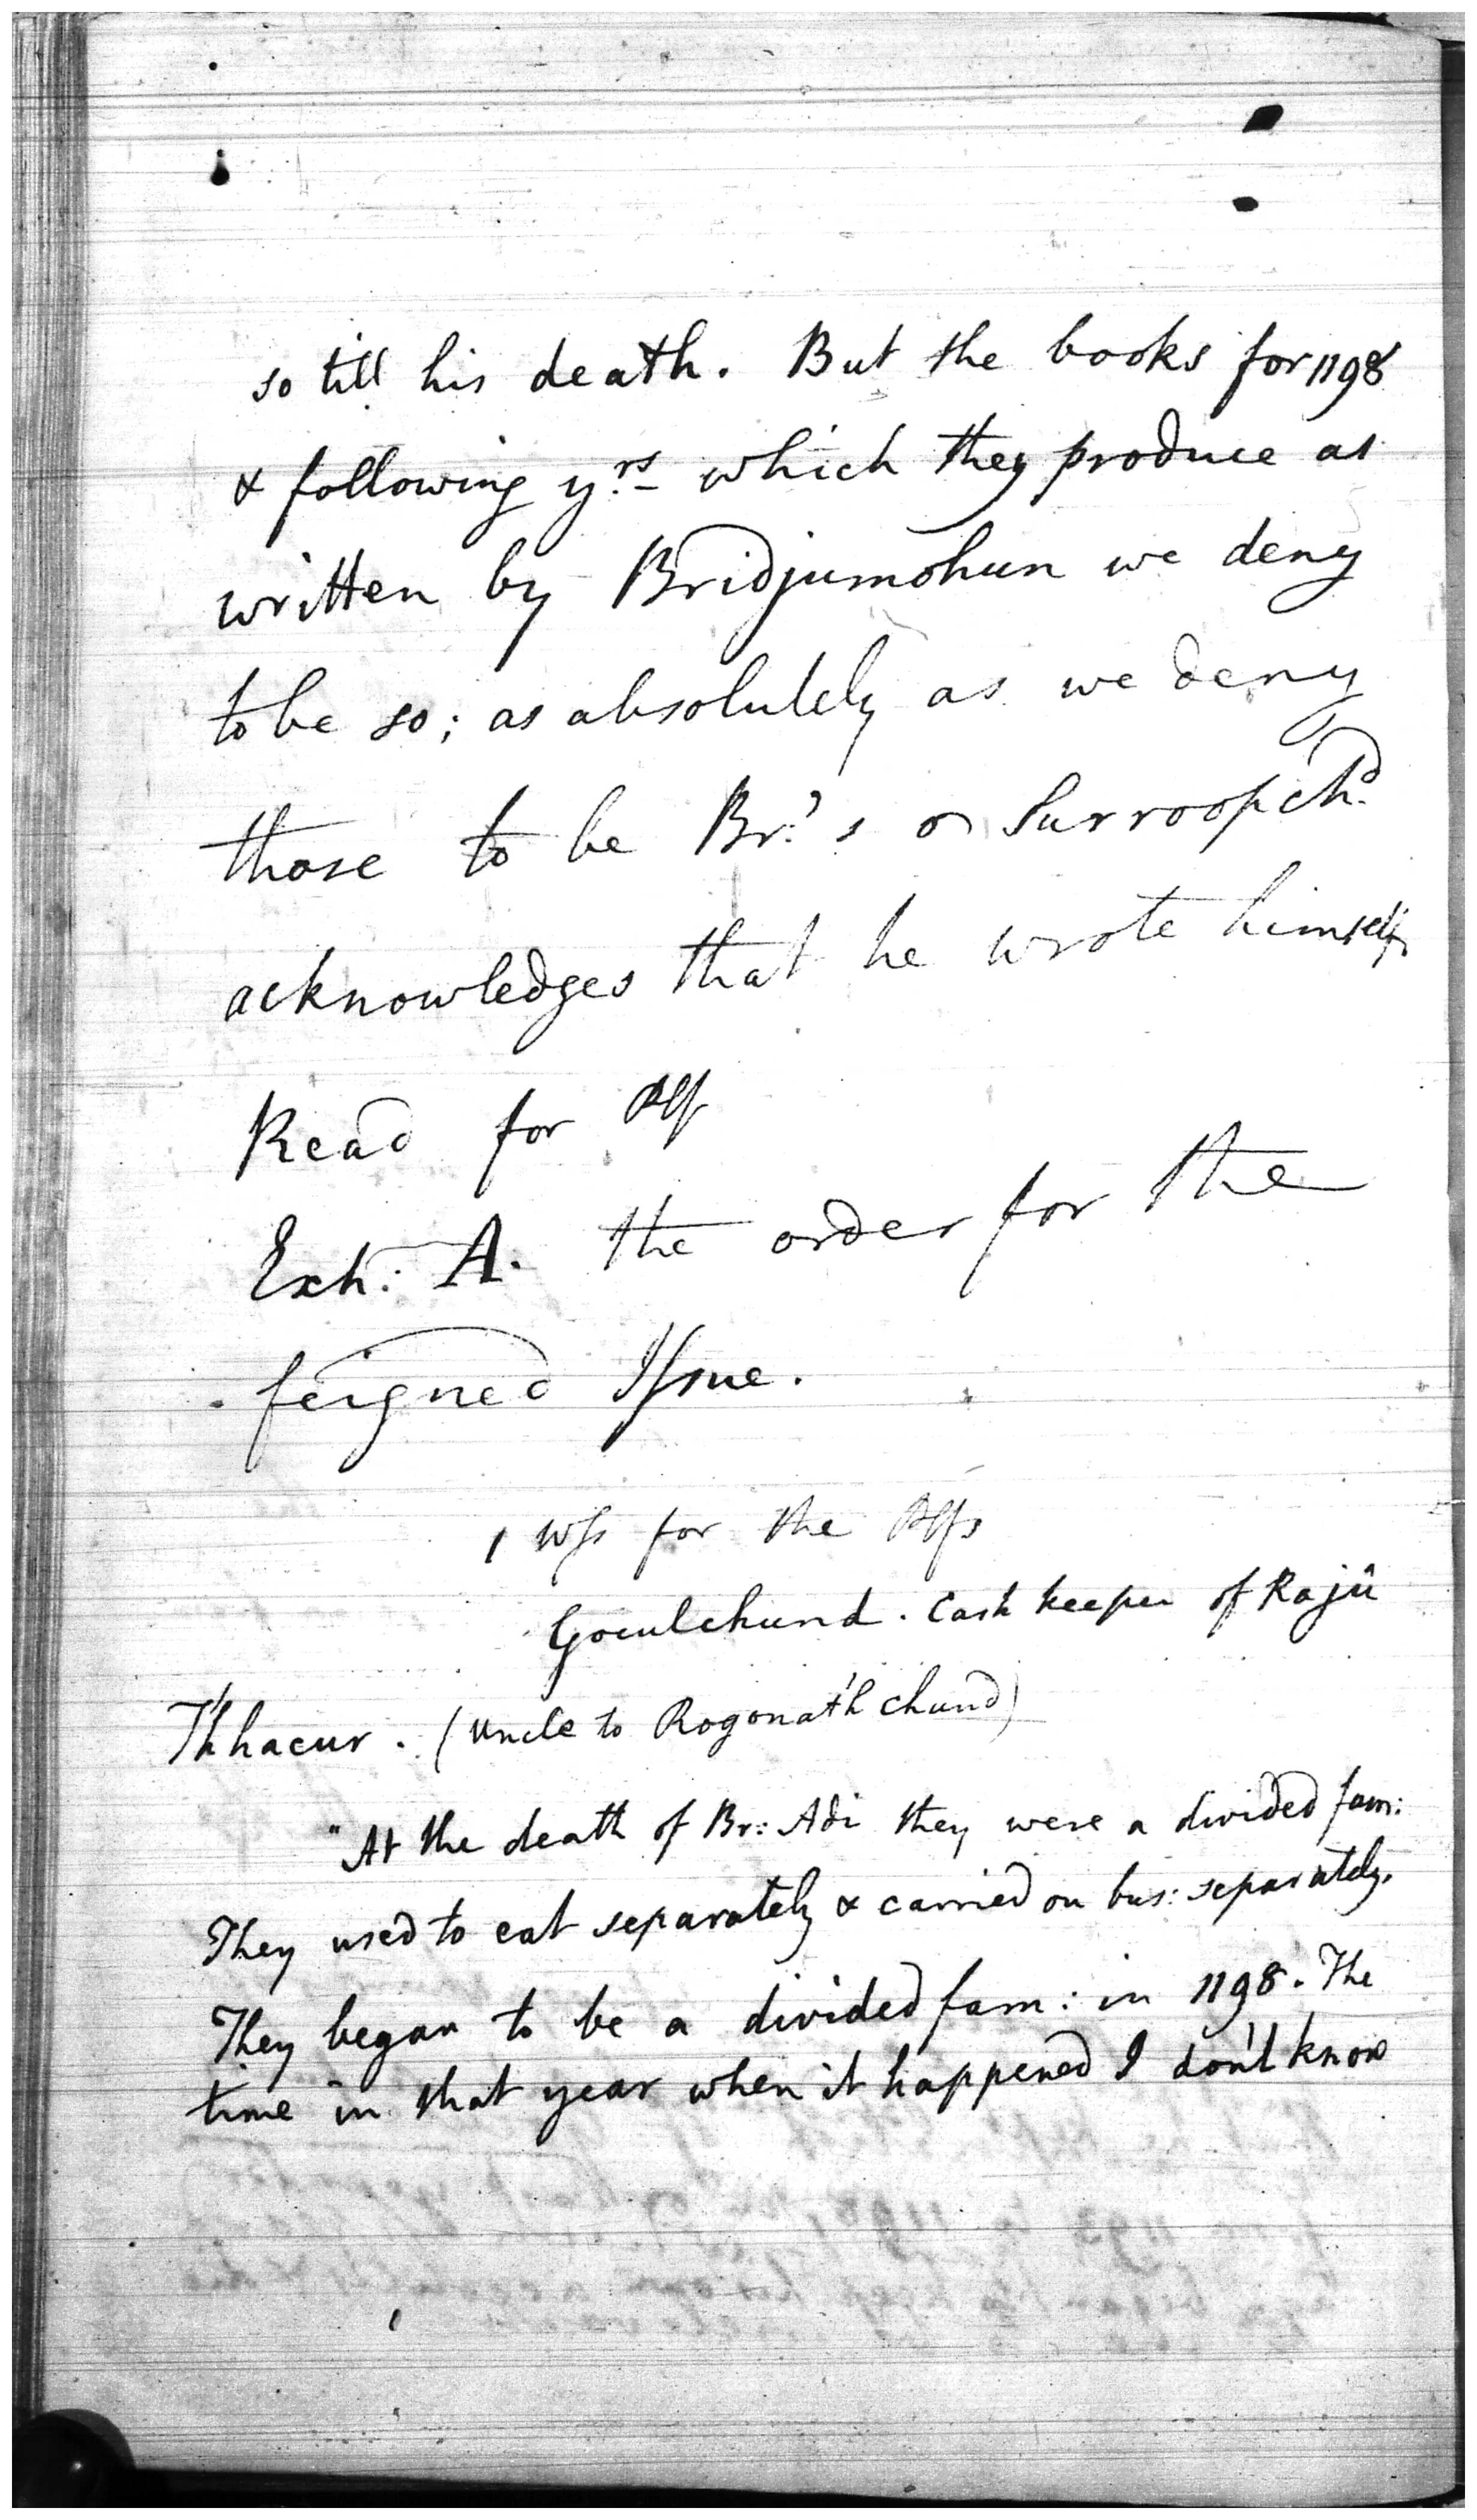 so till his death. But the books for 1198
& following y.rs which they produce as
written by Bridjumohun we deny
to be so; as absolutely as we deny
those to be Br:'s or Surroopch.d
acknowledges that he wrote himself.
Read for Plf
Exh: A. the order for the
feigned Issue.
1 Wss for the Plfs
Goculchund. Cash keeper of Rajú
T'hhacur. (Uncle to Rogonat'h Chund)
"At the death of Br: Adi they were a divided fam:
They used to eat separately & carried on bus: separately.
They began to be a divided fam: in 1198. The
time in that year when it happened I don't know